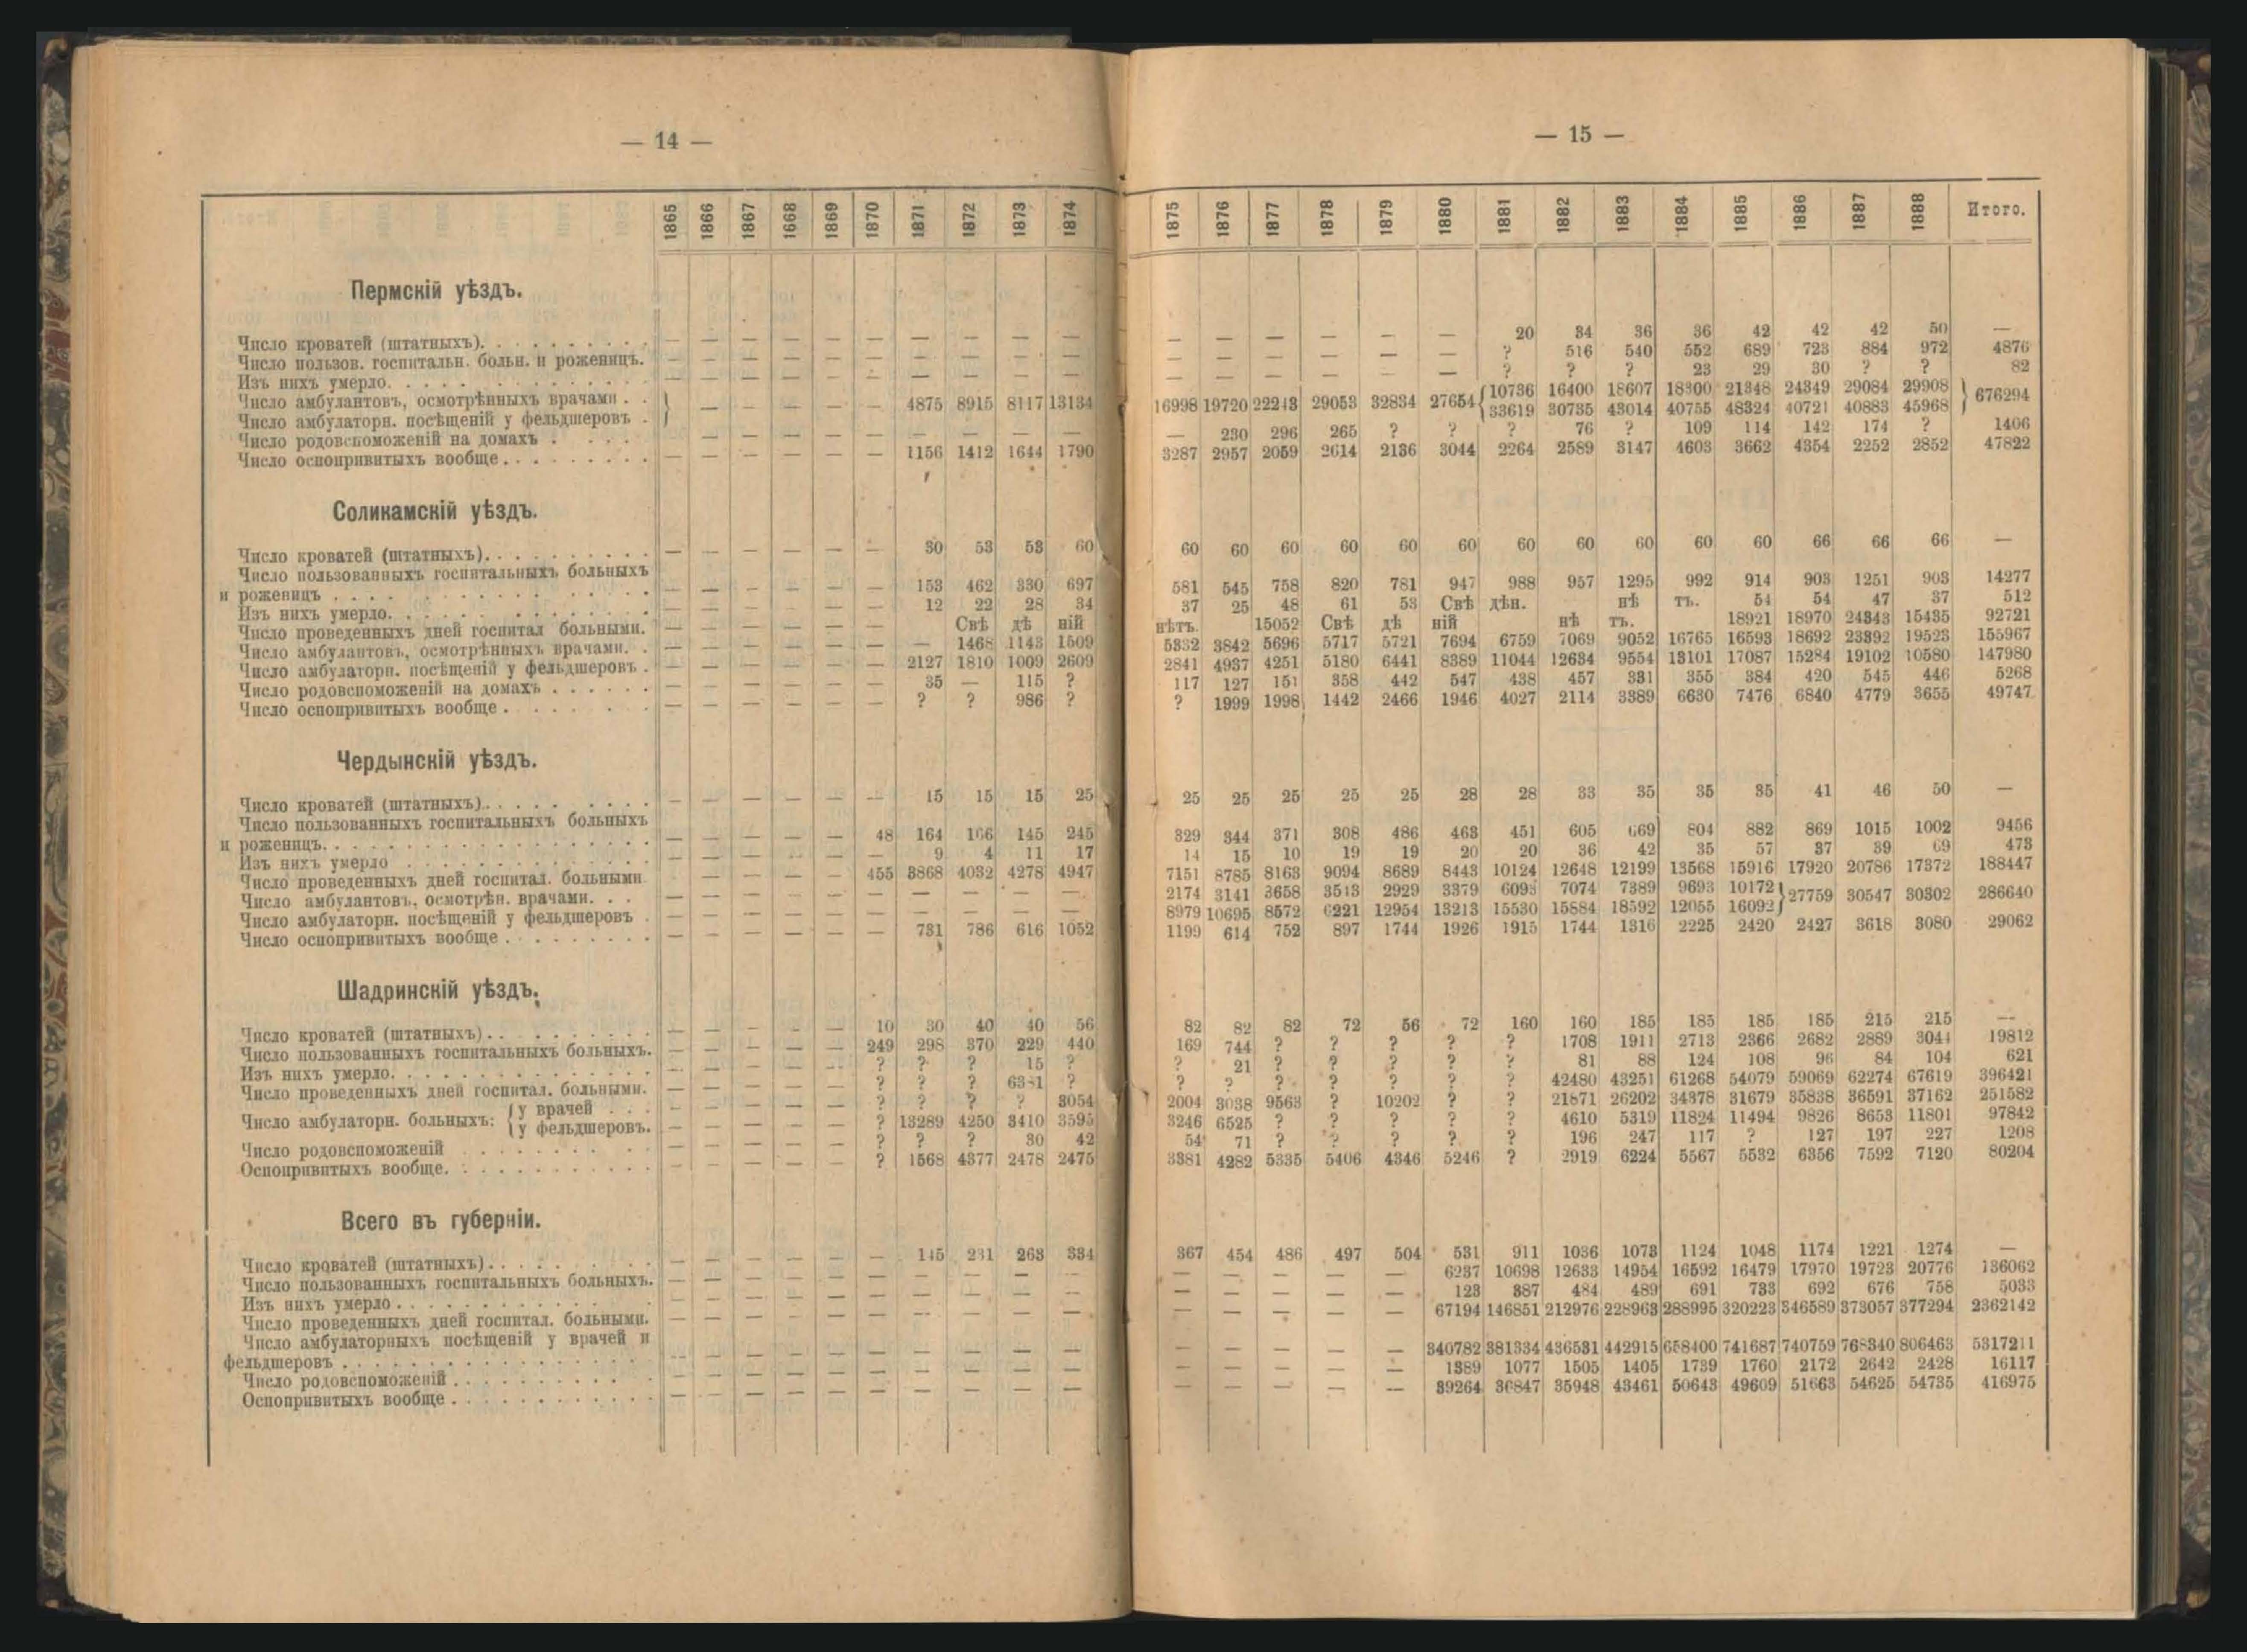 — 14 —
1865 1866 1867 1668 1869 1870 1871 1872 1873 1874
Пермскій уѣздъ.
Число кроватей (штатныхъ). — — — — — — — — — —
Число пользов. госпитальн. больн. и роженицъ. — — — — — — — — — —
Изъ нихъ умерло. — — — — — — — — — —
Число амбулантовъ, осмотрѣнныхъ врачами . . } — — — — — 4875 8915 8117 13134
Число амбулаторн. посѣщеній у фельдшеровъ .
Число родовспоможеній на домахъ . — — — — — — — — —
Число оспопривитыхъ вообще . — — — — — — 1156 1412 1644 1790
Соликамскій уѣздъ.
Число кроватей (штатныхъ). — — — — — — 30 53 53 60
Число пользованныхъ госпитальныхъ больныхъ
и роженицъ . — — — — — — 153 462 330 697
Изъ нихъ умерло. — — — — — — 12 22 28 34
Число проведенныхъ дней госпитал больными. — — — — — — Свѣ дѣ ній
Число амбулантовъ, осмотрѣнныхъ врачами. — — — — — — — 1468 1143 1509
Число амбулаторн. посѣщеній у фельдшеровъ . — — — — — — 2127 1810 1009 2609
Число родовспоможеній на домахъ . — — — — — — 35 — 115 ?
Число оспопривитыхъ вообще . — — — — — — ? ? 986 ?
Чердынскій уѣздъ.
Число кроватей (штатныхъ). — — — — — — 15 15 15 25
Число пользованныхъ госпитальныхъ больныхъ
и роженицъ. — — — — — 48 164 166 145 245
Изъ нихъ умерло — — — — — — 9 4 11 17
Число проведенныхъ дней госпитал. больными — — — — — 455 3868 4032 4278 4947
Число амбулантовъ, осмотрѣн. врачами. — — — — — — — — — —
Число амбулаторн. посѣщеній у фельдшеровъ . — — — — — — — — — —
Число оспопривитыхъ вообще . — — — — — — 731 786 616 1052
Шадринскій уѣздъ.
Число кроватей (штатныхъ) . — — — — — 10 30 40 40 56
Число пользованныхъ госпитальныхъ больныхъ. — — — — — 249 298 370 229 440
Изъ нихъ умерло. — — — — — ? ? ? 15 ?
Число проведенныхъ дней госпитал. больными. — — — — — ? ? ? ?
Число амбулаторн. больныхъ: { у врачей . . . — — — — — ? ? ? ? 3054
{ у фельдшеровъ. — — — — — ? 13289 4250 3410 3595
Число родовспоможеній — — — — — ? ? ? 30 42
Оспопривитыхъ вообще. — — — — — ? 1568 4377 2478 2475
Всего въ губерніи.
Число кроватей (штатныхъ) . — — — — — — 145 231 263 334
Число пользованныхъ госпитальныхъ больныхъ. — — — — — — — — — —
Изъ нихъ умерло . — — — — — — — — — —
Число проведенныхъ дней госпитал. больными. — — — — — — — — — —
Число амбулаторныхъ посѣщеній у врачей и
фельдшеровъ . — — — — — — — — — —
Число родовспоможеній . — — — — — — — — — —
Оспопривитыхъ вообще . — — — — — — — — — —
— 15 —
1875 1876 1877 1878 1879 1880 1881 1882 1883 1884 1885 1886 1887 1888 Итого.
— — — — — — 20 34 36 36 42 42 42 50 —
— — — — — — ? 516 540 552 689 723 884 972 4876
— — — — — — ? ? ? 23 29 30 ? ? 82
16998 19720 22243 29053 32834 27654 { 10736 16400 18607 18300 21348 24349 29084 29908 } 676294
33619 30735 43014 40755 48324 40721 40883 45968
— 230 296 265 ? ? ? 76 ? 109 114 142 174 ? 1406
3287 2957 2059 2614 2136 3044 2264 2589 3147 4603 3662 4354 2252 2852 47822
60 60 60 60 60 60 60 60 60 60 60 66 66 66 —
581 545 758 820 781 947 988 957 1295 992 914 903 1251 903 14277
37 25 48 61 53 Свѣ дѣн. нѣ тъ. 54 54 47 37 512
нѣтъ. 15052 Свѣ дѣ ній нѣ тъ. 18921 18970 24343 15435 92721
5332 3842 5696 5717 5721 7694 6759 7069 9052 16765 16593 18692 23392 19523 155967
2841 4937 4251 5180 6441 8389 11044 12634 9554 13101 17087 15284 19102 10580 147980
117 127 151 358 442 547 438 457 331 355 384 420 545 446 5268
? 1999 1998 1442 2466 1946 4027 2114 3389 6630 7476 6840 4779 3655 49747
25 25 25 25 25 28 28 33 35 35 35 41 46 50 —
329 344 371 308 486 463 451 605 669 804 882 869 1015 1002 9456
14 15 10 19 19 20 20 36 42 35 57 37 39 69 473
7151 8785 8163 9094 8689 8443 10124 12648 12199 13568 15916 17920 20786 17372 188447
2174 3141 3658 3513 2929 3379 6093 7074 7389 9693 10172 } 27759 30547 30302 286640
8979 10695 8572 6221 12954 13213 15530 15884 18592 12055 16092
1199 614 752 897 1744 1926 1915 1744 1316 2225 2420 2427 3618 3080 29062
82 82 82 72 56 72 160 160 185 185 185 185 215 215 —
169 744 ? ? ? ? ? 1708 1911 2713 2366 2682 2889 3044 19812
? 21 ? ? ? ? ? 81 88 124 108 96 84 104 621
? ? ? ? ? ? ? 42480 43251 61268 54079 59069 62274 67619 396421
2004 3038 9563 ? 10202 ? ? 21871 26202 34378 31679 35838 36591 37162 251582
3246 6525 ? ? ? ? ? 4610 5319 11824 11494 9826 8653 11801 97842
54 71 ? ? ? ? ? 196 247 117 ? 127 197 227 1208
3381 4282 5335 5406 4346 5246 ? 2919 6224 5567 5532 6356 7592 7120 80204
367 454 486 497 504 531 911 1036 1073 1124 1048 1174 1221 1274 —
— — — — — 6237 10698 12633 14954 16592 16479 17970 19723 20776 136062
123 387 484 489 691 733 692 676 758 5033
— — — — — 67194 146851 212976 228963 288995 320223 346589 373057 377294 2362142
— — — — — 340782 381334 436531 442915 658400 741687 740759 768340 806463 5317211
— — — — — 1389 1077 1505 1405 1739 1760 2172 2642 2428 16117
— — — — — 39264 36847 35948 43461 50643 49609 51663 54625 54735 416975